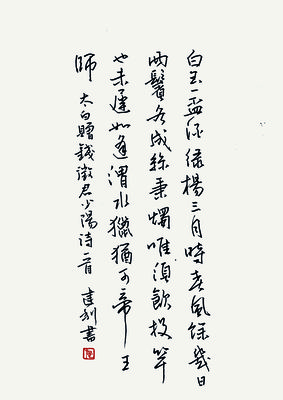 白玉一盃酒绿楊三月時春風餘幾日
兩鬢各成絲秉燭唯須飲投竿
也未遲如逢渭水獵猶可帝王
師 太白贈錢徵君少陽诗一首 書